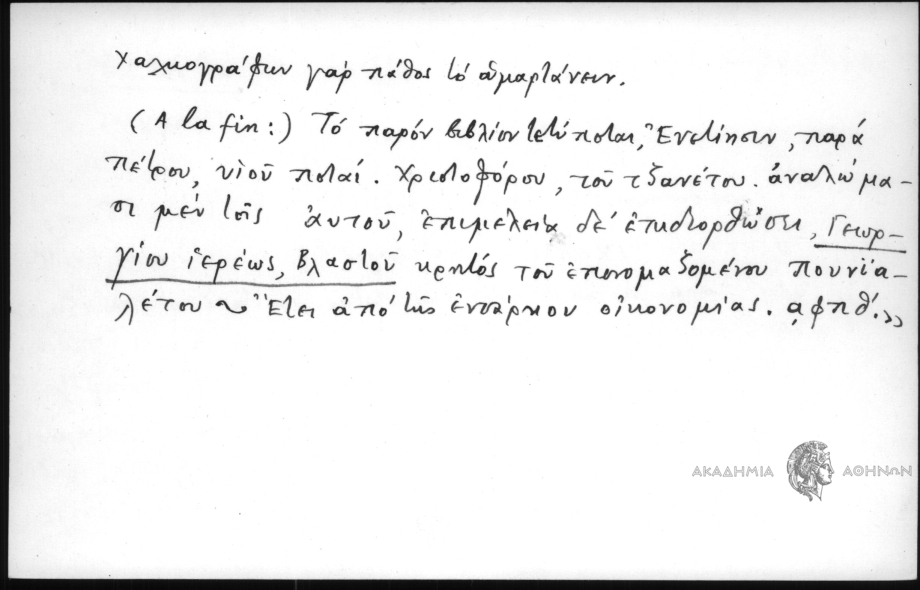 χαλκογράφων γαρ πάθος τό ἁμαρτάνειν.
(A la fin:) Τό παρόν βιβλίον τετύποται, Ἐνετίησιν, παρά
πέτρου, υἱοῦ ποταί. Χριστοφόρου, τοῦ τζανέτου. ἀναλώμα-
σι μέν τοῖς ἀυτοῦ, ἐπιμελεία δέ ἐπιδιορθώσει, Γεωρ-
γίου ἱερέως, Βλαστοῦ κρητός τοῦ ἐπονομαζομένου πουνϊα-
λέτου ~ Ἔτει ἀπό τῆς ἐνσάρκου οἰκονομίας. αφπθ΄.»
ΑΚΑΔΗΜΙΑ ΑΘΗΝΩΝ